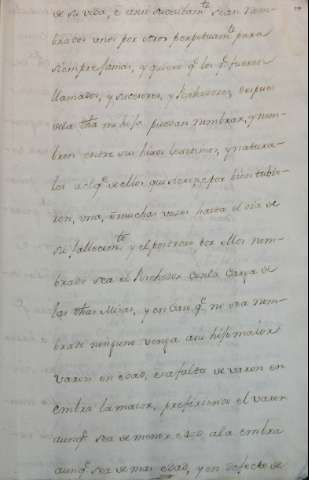 de su vida, è assi sucesibamte. sean nom-
brados unos por otros perpetuamte. para
siempre jamas, y quiero qe. los qe. fueren
llamados, y sucesores, y Poshedores, despues
de la dha mi hija puedan nombrar, y nom-
bren entre sus hijos lexitimos, y natura-
les a el qe. de ellos quisieren por bien tubie-
ren, una, ò muchas veces hasta el dia de
su fallecimte. y el postrero por ellos nom-
brado sea el Poshedor con la Carga de
las dhas Misas, y en Caso qe. no sea nom-
brado ninguno venga a su hijo maior
varon en edad, è a falta de varon en
embra la maior, prefiriendo el varon
aunqe. sea de menor edad, a la embra
aunqe. sea de mas edad, y en defecto de